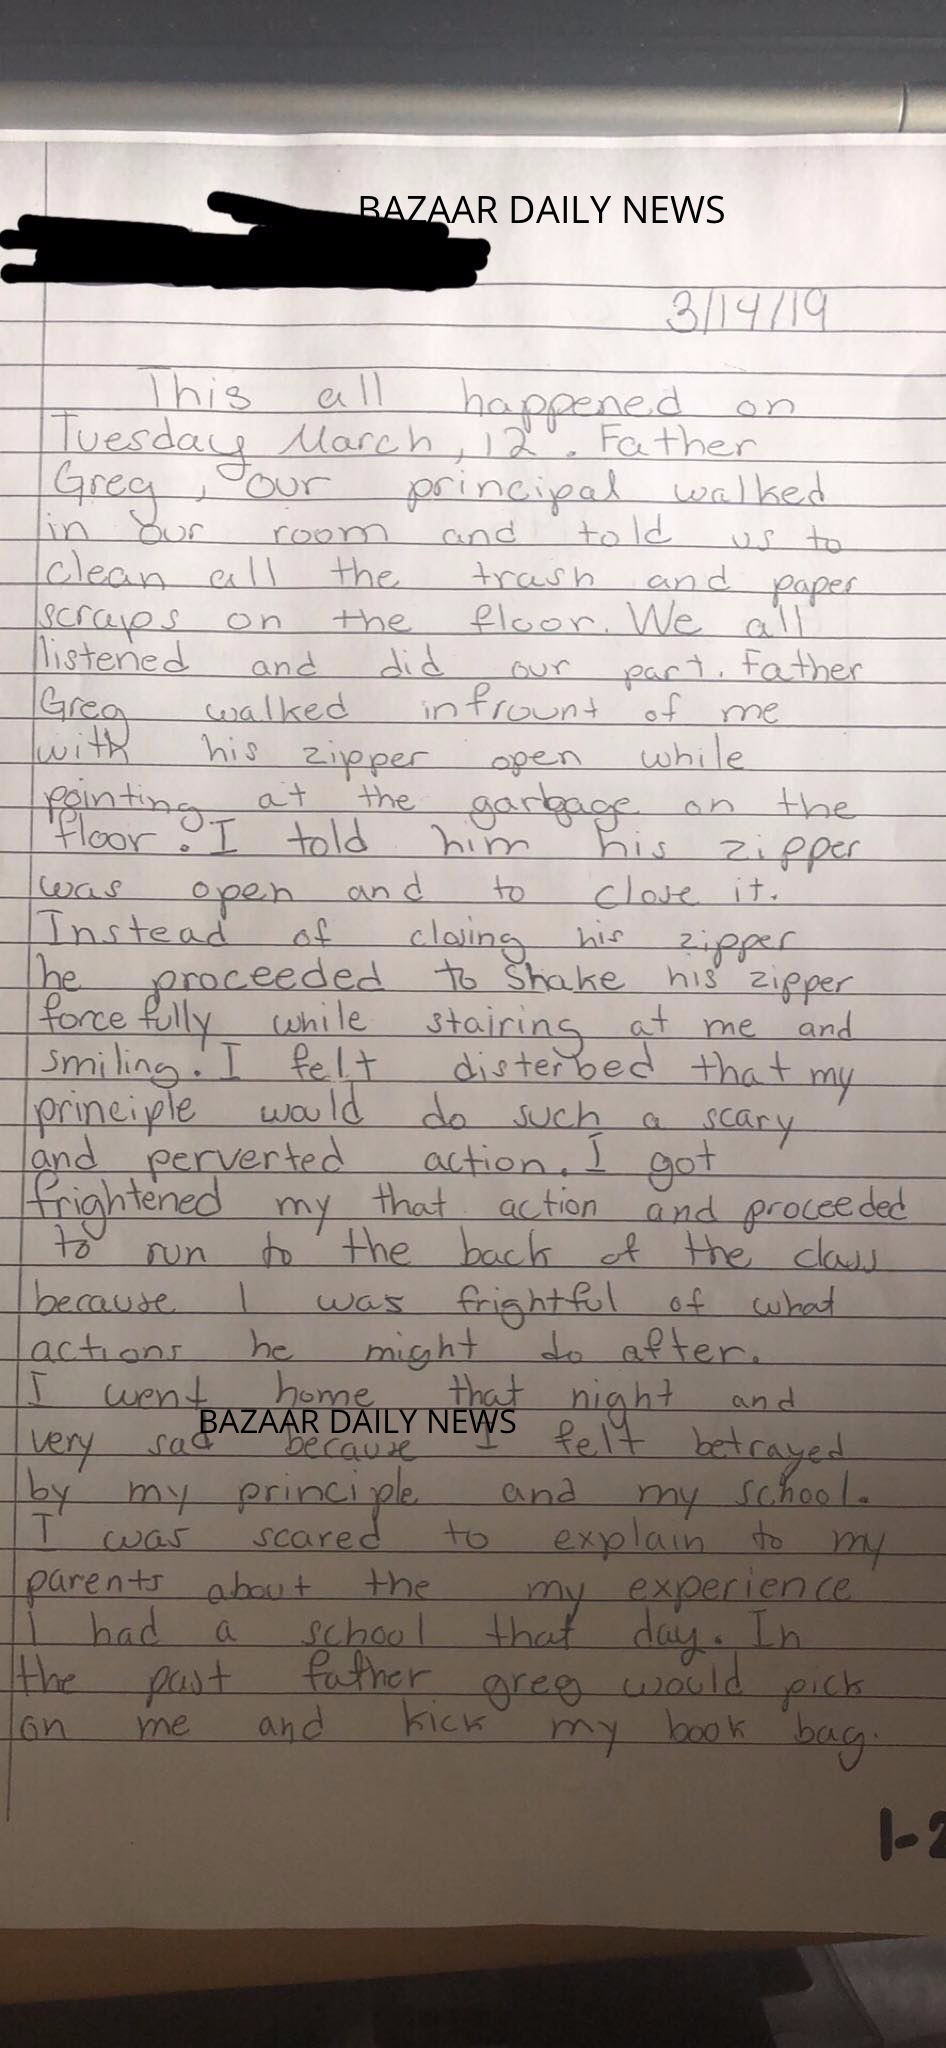 BAZAAR DAILY NEWS
3/14/19
This all happened on
Tuesday March, 12. Father
Greg, our principal walked
in our room and told us to
clean all the trash and paper
scraps on the floor. We all
listened and did our part. Father
Greg walked infrount of me
with his zipper open while
pointing at the garbage on the
floor. I told him his zipper
was open and to close it.
Instead of closing his zipper
he proceeded to shake his zipper
forcefully while stairing at me and
smiling. I felt disterbed that my
principle would do such a scary
and perverted action. I got
frightened my that action and proceeded
to run to the back of the class
because I was frightful of what
actions he might do after.
I went home that night and
BAZAAR DAILY NEWS
very sad because I felt betrayed
by my principle and my school.
I was scared to explain to my
parents about the my experience
I had a school that day. In
the past father greg would pick
on me and kick my book bag.
1-2